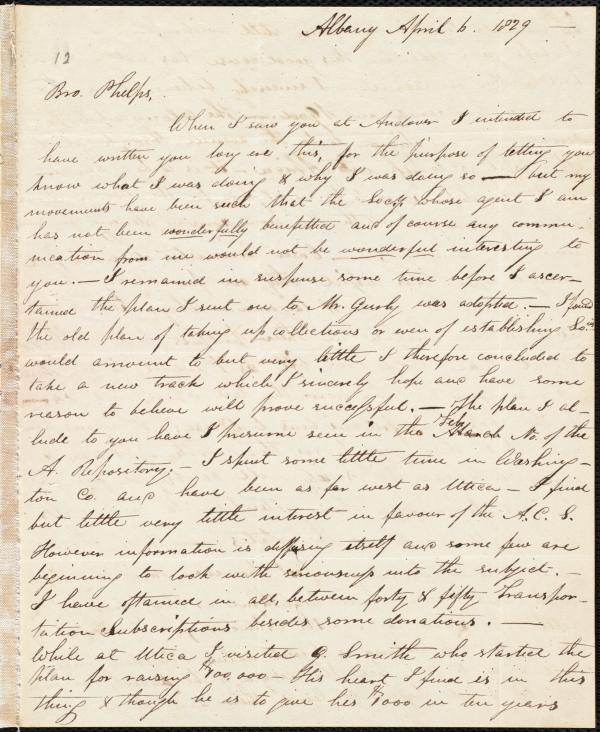 Albany April 6. 1829 —
12
Bro. Phelps,
When I saw you at Andover I intended to
have written you long ere this, for the purpose of letting you
know what I was doing & why I was doing so — but my
movements have been such that the Socy. whose agent I am
has not been wonderfully benefitted and of course any commu-
nication from me would not be wonderful interesting to
you. — I remained in suspense some time before I ascer-
tained the plan I sent on to Mr. Gurly was adopted. — I find
the old plan of taking up collections or even of establishing So.
would amount to but very little I therefore concluded to
take a new track which I sincerely hope and have some
reason to believe will prove successful. — The plan I al-
lude to you have I presume seen in the Feby. No. of the
A. Repository. — I spent some little time in Washing-
ton Co. and have been as far west as Utica — I find
but little very little interest in favour of the A. C. S.
However information is diffusing itself and some few are
beginning to look with seriousness into the subject. —
I have obtained in all, between forty & fifty Transpor-
tation Subscriptions besides some donations. —
While at Utica I visited G. Smith who started the
plan for raising $100,000 — His heart I find is in this
thing & though he is to give his $1000 in ten years